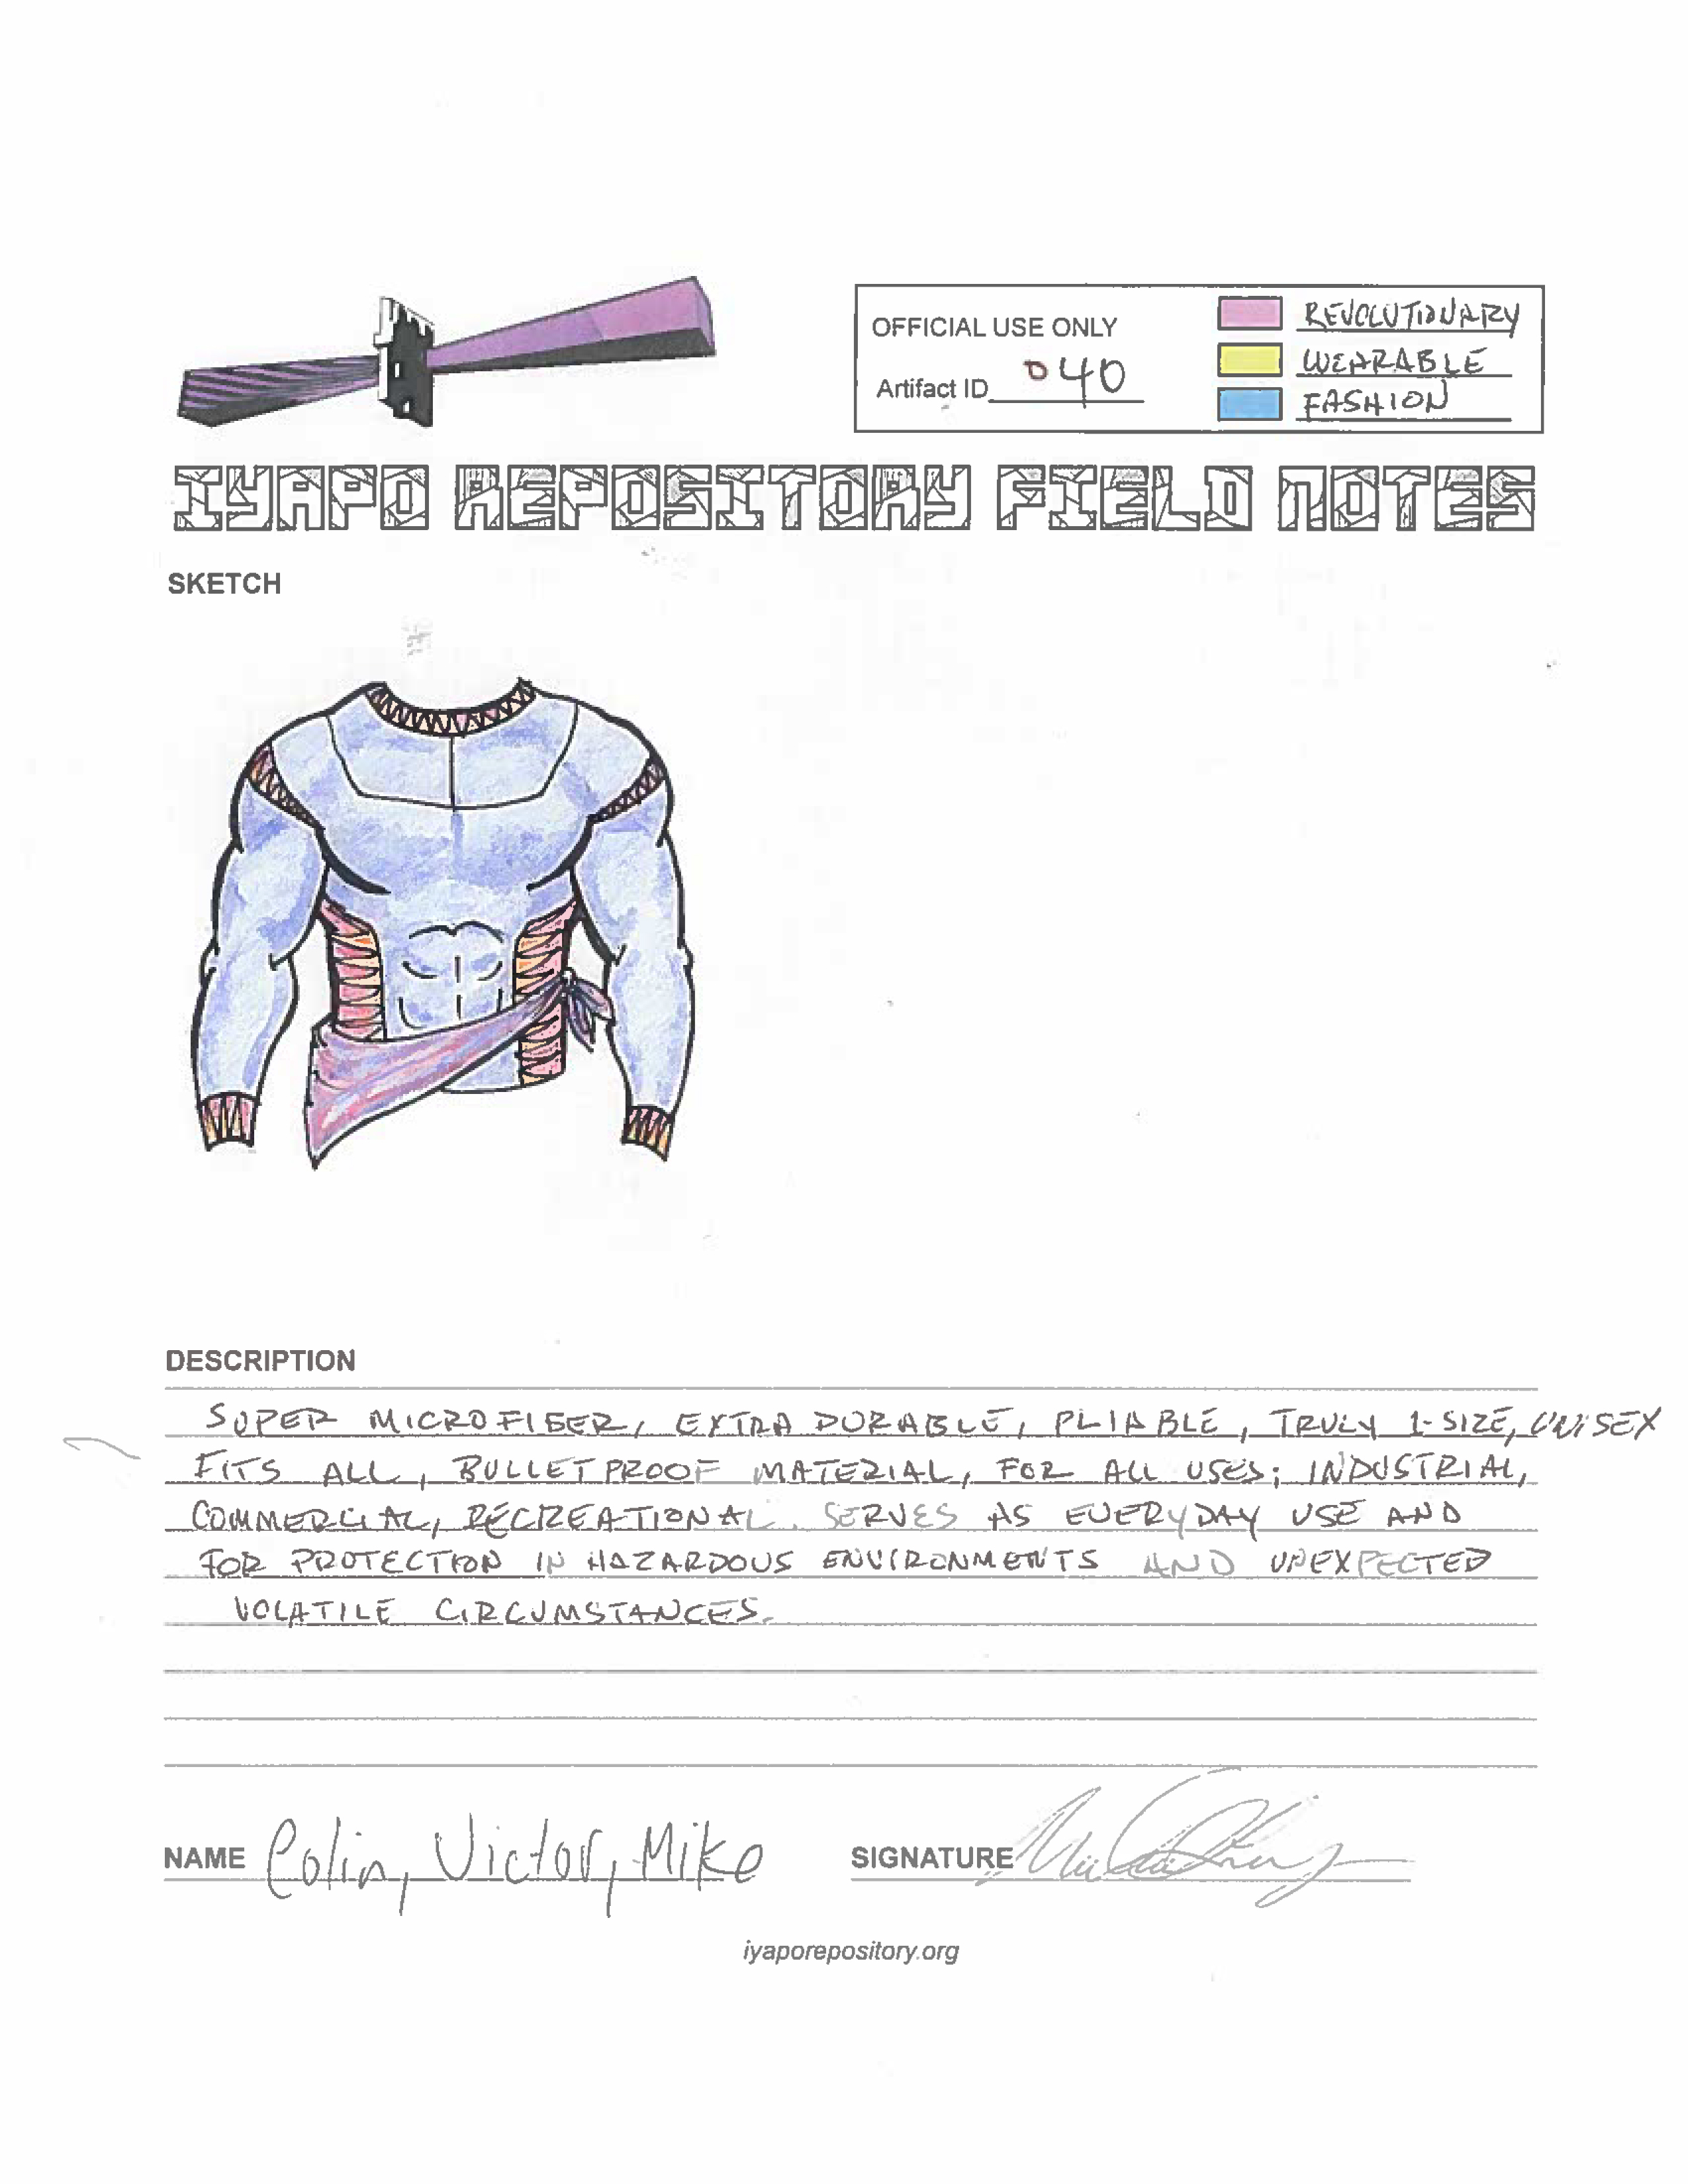 OFFICIAL USE ONLY
Artifact ID 040
REVOLUTIONARY
WEARABLE
FASHION
IYAPO REPOSITORY FIELD NOTES
SKETCH
DESCRIPTION
SUPER MICROFIBER, EXTRA DURABLE, PLIABLE, TRULY 1-SIZE, UNISEX
FITS ALL, BULLETPROOF MATERIAL, FOR ALL USES; INDUSTRIAL,
COMMERCIAL, RECREATIONAL. SERVES AS EVERYDAY USE AND
FOR PROTECTION IN HAZARDOUS ENVIRONMENTS AND UNEXPECTED
VOLATILE CIRCUMSTANCES.
NAME Colin, Victor, Mike
SIGNATURE
iyaporepository.org